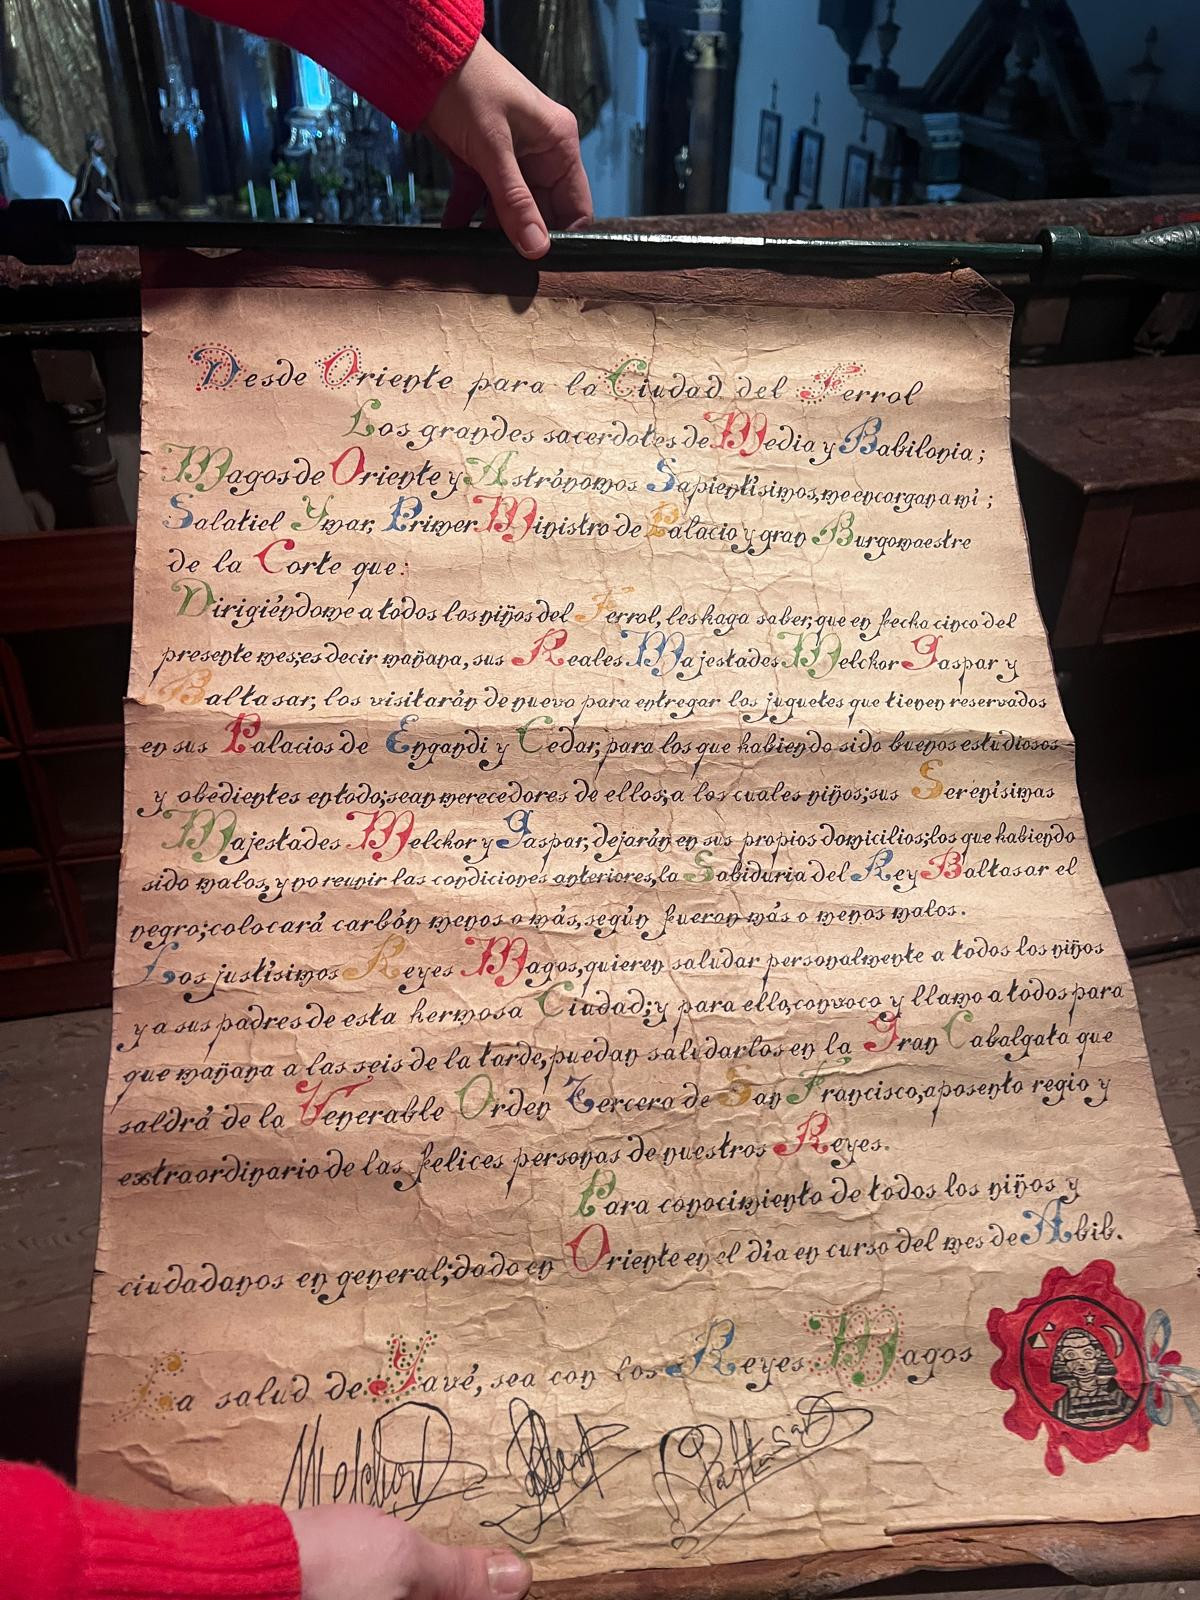 Desde Oriente para la Ciudad del Ferrol
Los grandes sacerdotes de Media y Babilonia;
Magos de Oriente y Astrónomos Sapientísimos, me encargan a mí;
Salatiel Ymar, Primer Ministro de Palacio y gran Burgomaestre
de la Corte que:
Dirigiéndome a todos los niños del Ferrol, les haga saber; que en fecha cinco del
presente mes; es decir mañana, sus Reales Majestades Melchor Gaspar y
Baltasar; los visitarán de nuevo para entregar los juguetes que tienen reservados
en sus Palacios de Engandi y Cedar; para los que habiendo sido buenos estudiosos
y obedientes en todo; sean merecedores de ellos; a los cuales niños; sus Serenísimas
Majestades Melchor y Gaspar; dejarán en sus propios domicilios; los que habiendo
sido malos, y no reunir las condiciones anteriores, la Sabiduria del Rey Baltasar el
negro; colocará carbón menos o más, según fueran más o menos malos.
Los justísimos Reyes Magos, quieren saludar personalmente a todos los niños
y a sus padres de esta hermosa Ciudad; y para ello, convoco y llamo a todos para
que mañana a las seis de la tarde, puedan saludarlos en la Gran Cabalgata que
saldrá de la Venerable Orden Tercera de San Francisco, aposento regio y
extraordinario de las felices personas de nuestros Reyes.
Para conocimiento de todos los niños y
ciudadanos en general; dado en Oriente en el día en curso del mes de Abib.
La salud de Yavé, sea con los Reyes Magos
Melchor Baltasar